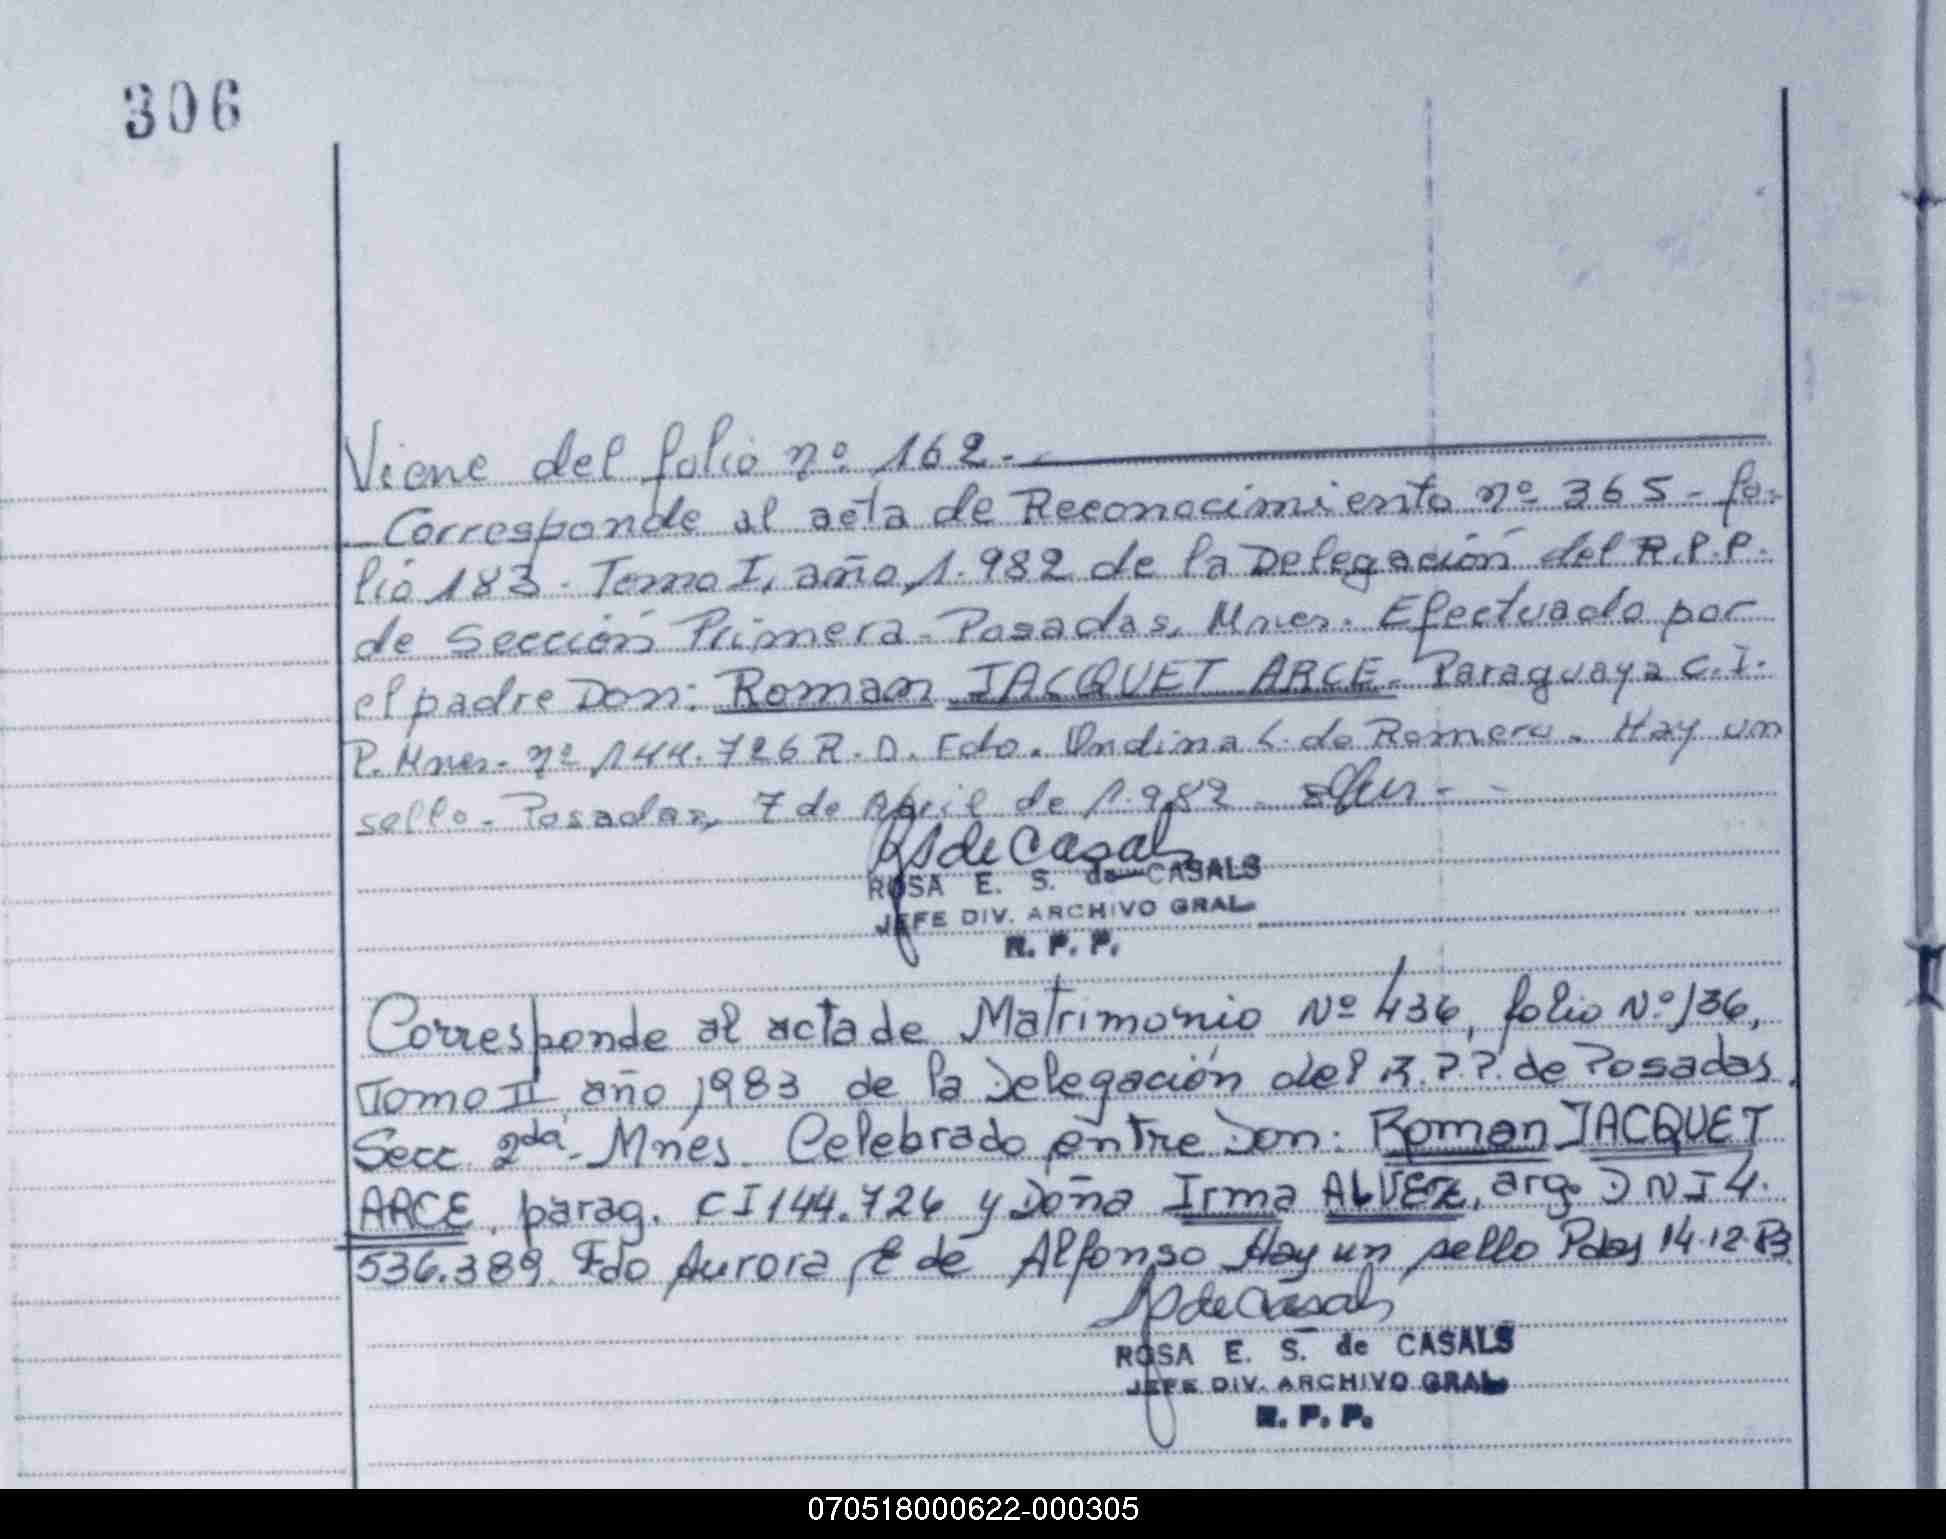 306
Viene del folio nº 162.-
Corresponde al acta de Reconocimiento nº 365 - fo-
lio 183 - Tomo I, año, 1.982 de la Delegación del R.P.P.
de Sección Primera - Posadas, Mnes. Efectuado por
el padre Don: Roman JACQUET ARCE - Paraguaya C.I.
P. Mnes. nº 144.726 R.D. Fdo. Ondina L. de Romero - Hay un
sello - Posadas, 7 de Abril de 1.982 -
RSdeCasals
ROSA E. S. de CASALS
JEFE DIV. ARCHIVO GRAL
R. P. P.
Corresponde al acta de Matrimonio Nº 436, folio Nº 136,
Tomo II año 1983 de la Delegación del R.P.P. de Posadas,
Secc 2da - Mnes. Celebrado entre Don: Roman JACQUET
ARCE, parag. CI 144.726 y Doña Irma ALVEZ, arg. DNI 4.
536.389. Fdo Aurora E de Alfonso Hay un sello Pdas 14-12-83
RSdeCasals
ROSA E. S. de CASALS
JEFE DIV. ARCHIVO GRAL
R. P. P.
070518000622-000305